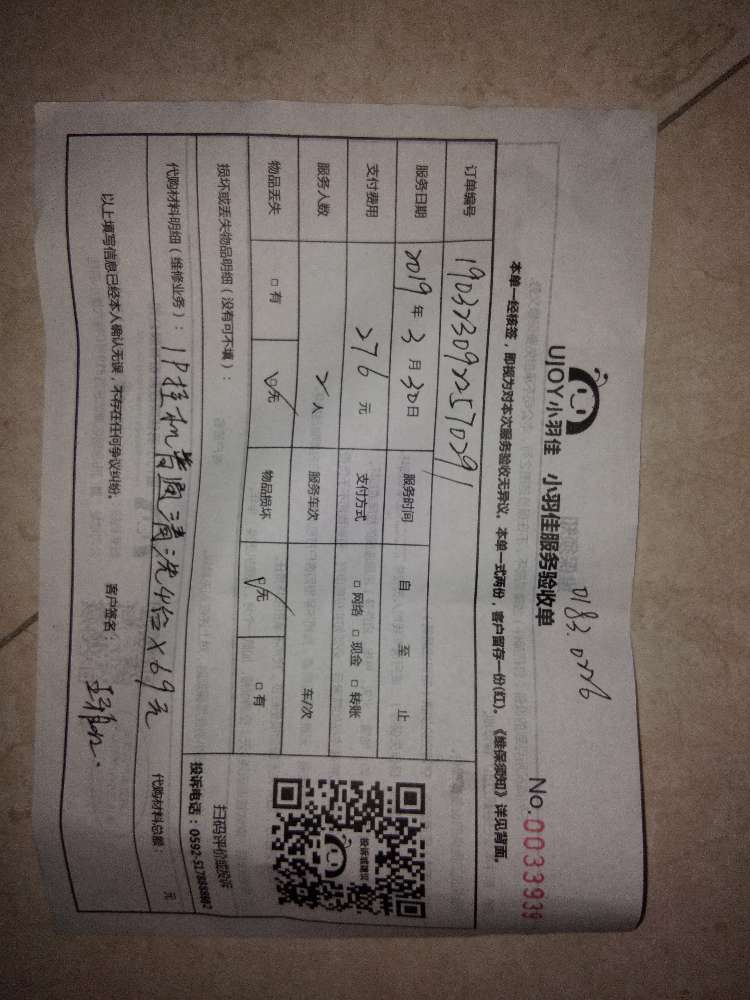 0183.0226
UJOY小羽佳 小羽佳服务验收单
No.0033939
本单一经核签,即视为对本次服务验收无异议。本单一式两份,客户留存一份(红)。《维保须知》详见背面。
订单编号
服务日期 2019年3月30日 服务时间 自 至 止
支付费用 276元 支付方式 □网络 □现金 □转账
服务人数 2人 服务车次 车/次
物品丢失 □有 □无 物品损坏 □无 □有
投诉或建议
扫码评价或投诉
投诉电话:
损坏或丢失物品明细(没有可不填):
代购材料明细(维修业务): 1P挂机普通清洗4台×69元 代购材料总额: 元
以上填写信息已经本人确认无误,不存在任何争议纠纷。 客户签名: